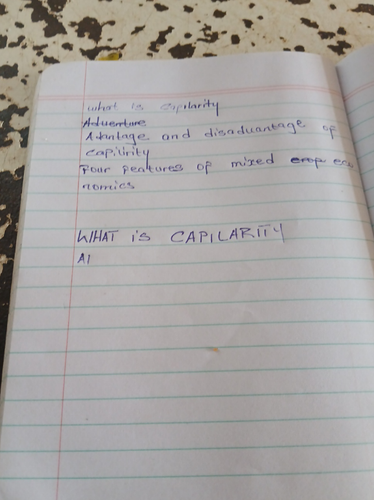 what is Capilarity
Adventure
Advantage and disadvantage of
Capilirity
Four features of mixed crop eco
nomics
WHAT iS CAPILARITY
Al